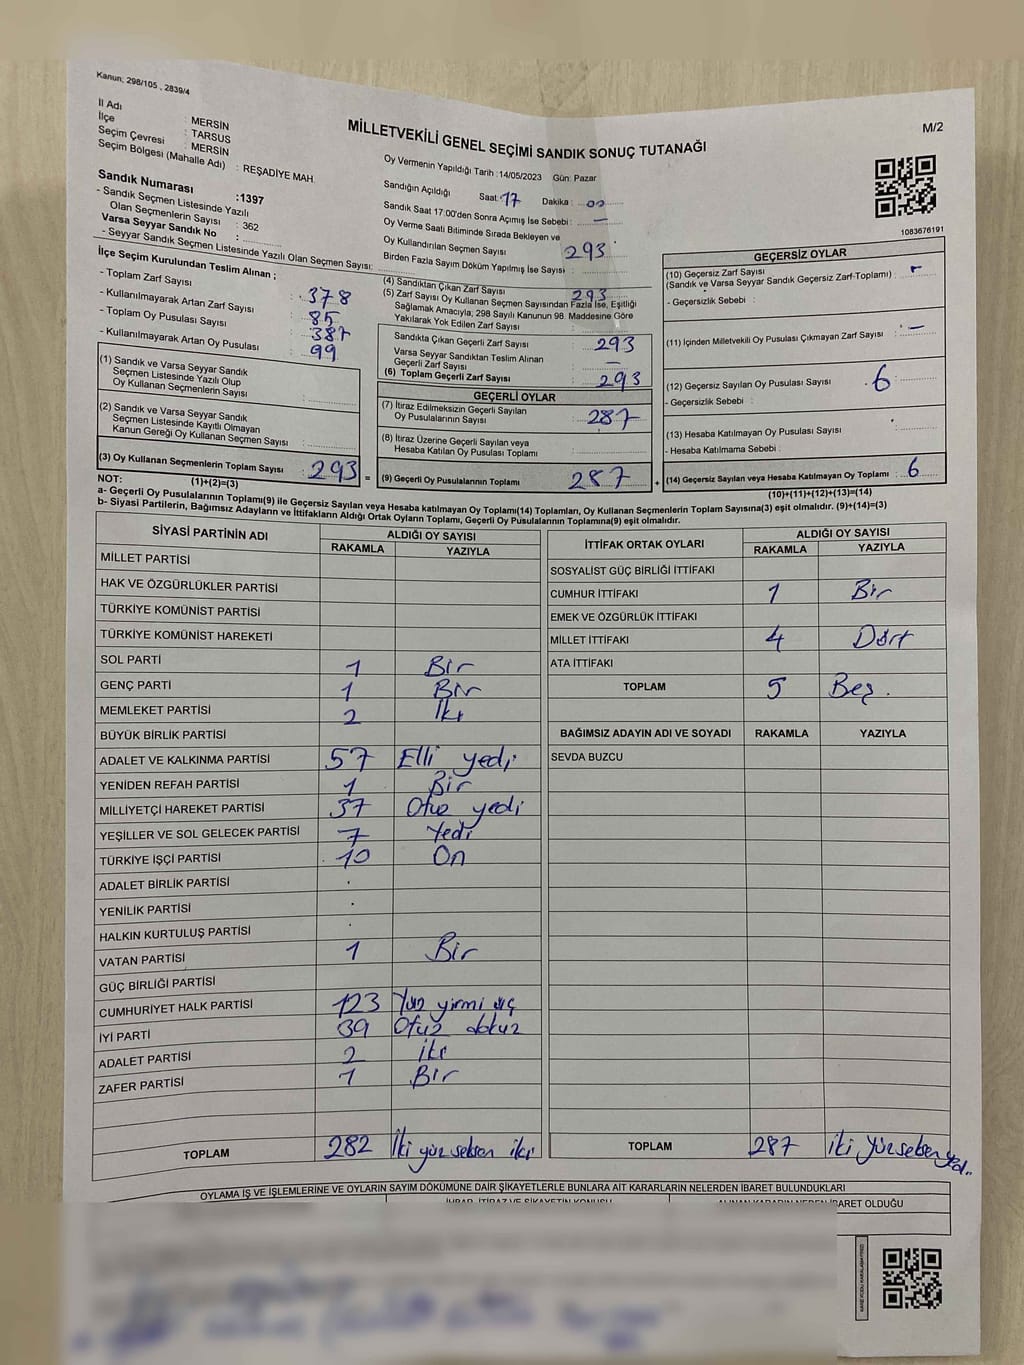 Kanun; 298/105 , 2839/4
M/2
İl Adı : MERSİN
İlçe : TARSUS
Seçim Çevresi : MERSİN
Seçim Bölgesi (Mahalle Adı) : REŞADİYE MAH.
MİLLETVEKİLİ GENEL SEÇİMİ SANDIK SONUÇ TUTANAĞI
1083676191
Sandık Numarası :1397
- Sandık Seçmen Listesinde Yazılı
Olan Seçmenlerin Sayısı : 362
Varsa Seyyar Sandık No :
- Seyyar Sandık Seçmen Listesinde Yazılı Olan Seçmen Sayısı:
İlçe Seçim Kurulundan Teslim Alınan ;
- Toplam Zarf Sayısı : 378
- Kullanılmayarak Artan Zarf Sayısı : 85
- Toplam Oy Pusulası Sayısı : 387
- Kullanılmayarak Artan Oy Pusulası : 99
(1) Sandık ve Varsa Seyyar Sandık
Seçmen Listesinde Yazılı Olup
Oy Kullanan Seçmenlerin Sayısı :
(2) Sandık ve Varsa Seyyar Sandık
Seçmen Listesinde Kayıtlı Olmayan
Kanun Gereği Oy Kullanan Seçmen Sayısı :
(3) Oy Kullanan Seçmenlerin Toplam Sayısı : 293 =
(1)+(2)=(3)
Oy Vermenin Yapıldığı Tarih :14/05/2023 Gün: Pazar
Sandığın Açıldığı Saat : 17 Dakika : 00
Sandık Saat 17:00'den Sonra Açımış İse Sebebi : —
Oy Verme Saati Bitiminde Sırada Bekleyen ve
Oy Kullandırılan Seçmen Sayısı : 293
Birden Fazla Sayım Döküm Yapılmış İse Sayısı :
(4) Sandıktan Çıkan Zarf Sayısı : 293
(5) Zarf Sayısı Oy Kullanan Seçmen Sayısından Fazla İse, Eşitliği
Sağlamak Amacıyla; 298 Sayılı Kanunun 98. Maddesine Göre
Yakılarak Yok Edilen Zarf Sayısı :
Sandıkta Çıkan Geçerli Zarf Sayısı : 293
Varsa Seyyar Sandıktan Teslim Alınan
Geçerli Zarf Sayısı : —
(6) Toplam Geçerli Zarf Sayısı : 293
GEÇERLİ OYLAR
(7) İtiraz Edilmeksizin Geçerli Sayılan
Oy Pusulalarının Sayısı : 287
(8) İtiraz Üzerine Geçerli Sayılan veya
Hesaba Katılan Oy Pusulası Toplamı :
(9) Geçerli Oy Pusulalarının Toplamı : 287 +
GEÇERSİZ OYLAR
(10) Geçersiz Zarf Sayısı :
(Sandık ve Varsa Seyyar Sandık Geçersiz Zarf Toplamı) : -
- Geçersizlik Sebebi :
(11) İçinden Milletvekili Oy Pusulası Çıkmayan Zarf Sayısı : —
(12) Geçersiz Sayılan Oy Pusulası Sayısı : 6
- Geçersizlik Sebebi :
(13) Hesaba Katılmayan Oy Pusulası Sayısı :
- Hesaba Katılmama Sebebi :
(14) Geçersiz Sayılan veya Hesaba Katılmayan Oy Toplamı : 6
(10)+(11)+(12)+(13)=(14)
NOT:
a- Geçerli Oy Pusulalarının Toplamı(9) ile Geçersiz Sayılan veya Hesaba katılmayan Oy Toplamı(14) Toplamları, Oy Kullanan Seçmenlerin Toplam Sayısına(3) eşit olmalıdır. (9)+(14)=(3)
b- Siyasi Partilerin, Bağımsız Adayların ve İttifakların Aldığı Ortak Oyların Toplamı, Geçerli Oy Pusulalarının Toplamına(9) eşit olmalıdır.
SİYASİ PARTİNİN ADI
ALDIĞI OY SAYISI
RAKAMLA YAZIYLA
MİLLET PARTİSİ
HAK VE ÖZGÜRLÜKLER PARTİSİ
TÜRKİYE KOMÜNİST PARTİSİ
TÜRKİYE KOMÜNİST HAREKETİ
SOL PARTİ 1 Bir
GENÇ PARTİ 1 Bir
MEMLEKET PARTİSİ 2 İki
BÜYÜK BİRLİK PARTİSİ
ADALET VE KALKINMA PARTİSİ 57 Elli yedi
YENİDEN REFAH PARTİSİ 1 Bir
MİLLİYETÇİ HAREKET PARTİSİ 37 Otuz yedi
YEŞİLLER VE SOL GELECEK PARTİSİ 7 Yedi
TÜRKİYE İŞÇİ PARTİSİ 10 On
ADALET BİRLİK PARTİSİ
YENİLİK PARTİSİ
HALKIN KURTULUŞ PARTİSİ
VATAN PARTİSİ 1 Bir
GÜÇ BİRLİĞİ PARTİSİ
CUMHURİYET HALK PARTİSİ 123 Yüz yirmi üç
İYİ PARTİ 39 Otuz dokuz
ADALET PARTİSİ 2 iki
ZAFER PARTİSİ 1 Bir
TOPLAM 282 İki yüz seksen iki
İTTİFAK ORTAK OYLARI
ALDIĞI OY SAYISI
RAKAMLA YAZIYLA
SOSYALİST GÜÇ BİRLİĞİ İTTİFAKI
CUMHUR İTTİFAKI 1 Bir
EMEK VE ÖZGÜRLÜK İTTİFAKI
MİLLET İTTİFAKI 4 Dört
ATA İTTİFAKI
TOPLAM 5 Beş.
BAĞIMSIZ ADAYIN ADI VE SOYADI RAKAMLA YAZIYLA
SEVDA BUZCU
TOPLAM 287 iki yüz seksen yedi
OYLAMA İŞ VE İŞLEMLERİNE VE OYLARIN SAYIM DÖKÜMÜNE DAİR ŞİKAYETLERLE BUNLARA AİT KARARLARIN NELERDEN İBARET BULUNDUKLARI
İHBAR, İTİRAZ VE ŞİKAYETİN KONUSU ALINAN KARARIN NEDEN İBARET OLDUĞU